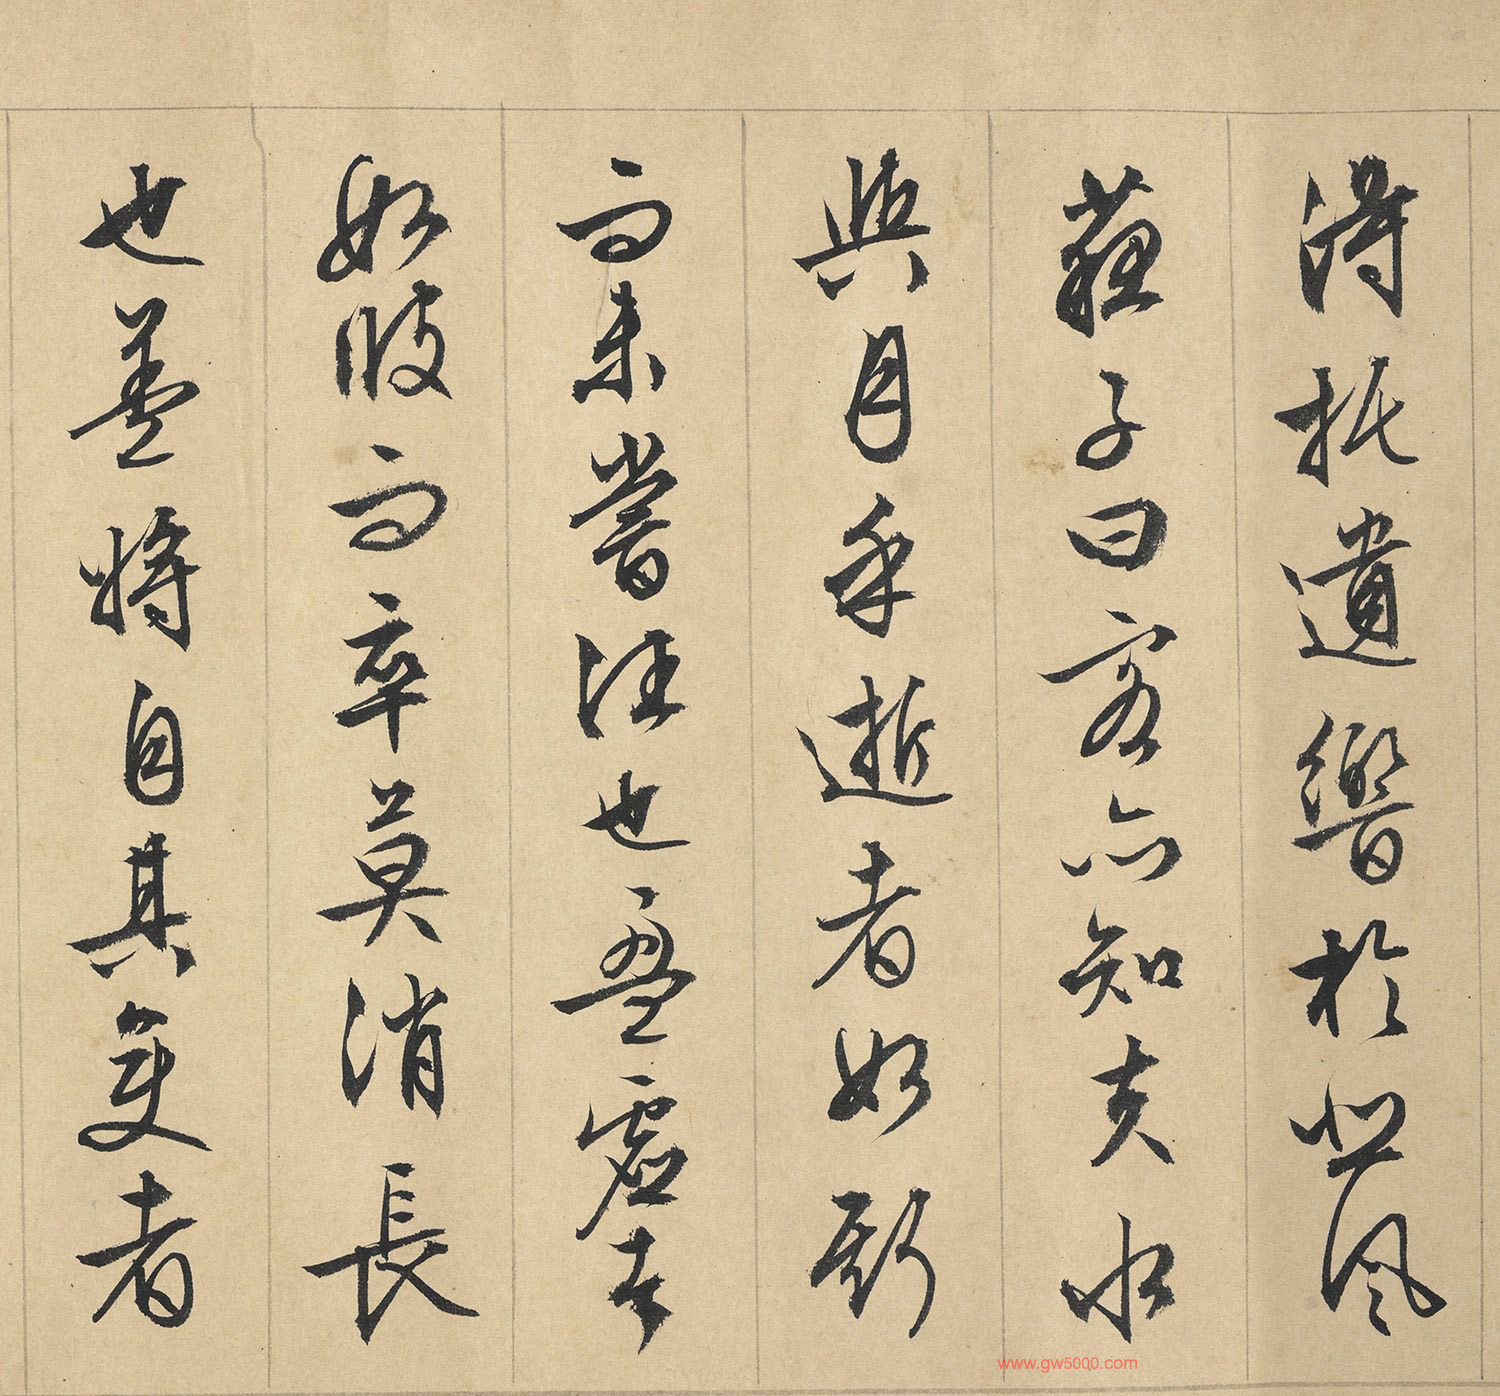 得托遺響於悲風
蘇子曰客亦知夫水
與月乎逝者如斯
而未嘗往也盈虛者
如彼而卒莫消長
也蓋將自其變者
www.gw5000.com